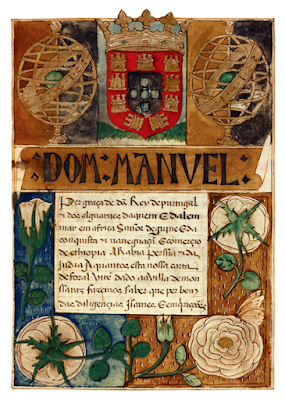 DOM: MANVEL:
Per graça de dȏ Rey de purtugal
& dos algarues daquem & dalem
mar em africa Sñor de guine & da
conquista & nauegaçã & comerçio
de ethiopia Arabia Perssia & da
jndia A quantos esta nossa carta
de foral virẽ dado aa villa de mon
ssaraz fazemos saber que per bem
das diligençias